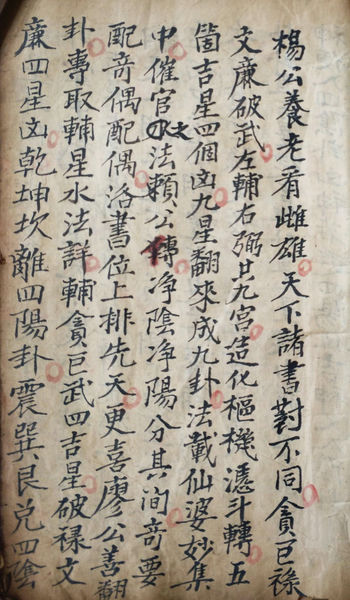 楊公養老看雌雄天下諸書對不同貪巨祿
文廉破武左輔右弼廿九宮造化樞機憑斗轉五
箇吉星四個凶九星翻來成九卦法載仙婆妙集
中催官水法賴公轉淨陰淨陽分其洵奇要
配奇偶配偶洛書位上排先天更喜廖公善翻
卦專取輔星水法詳輔貪巨武四吉星破祿文
廉四星凶乾坤坎離四陽卦震巽艮兌四陰